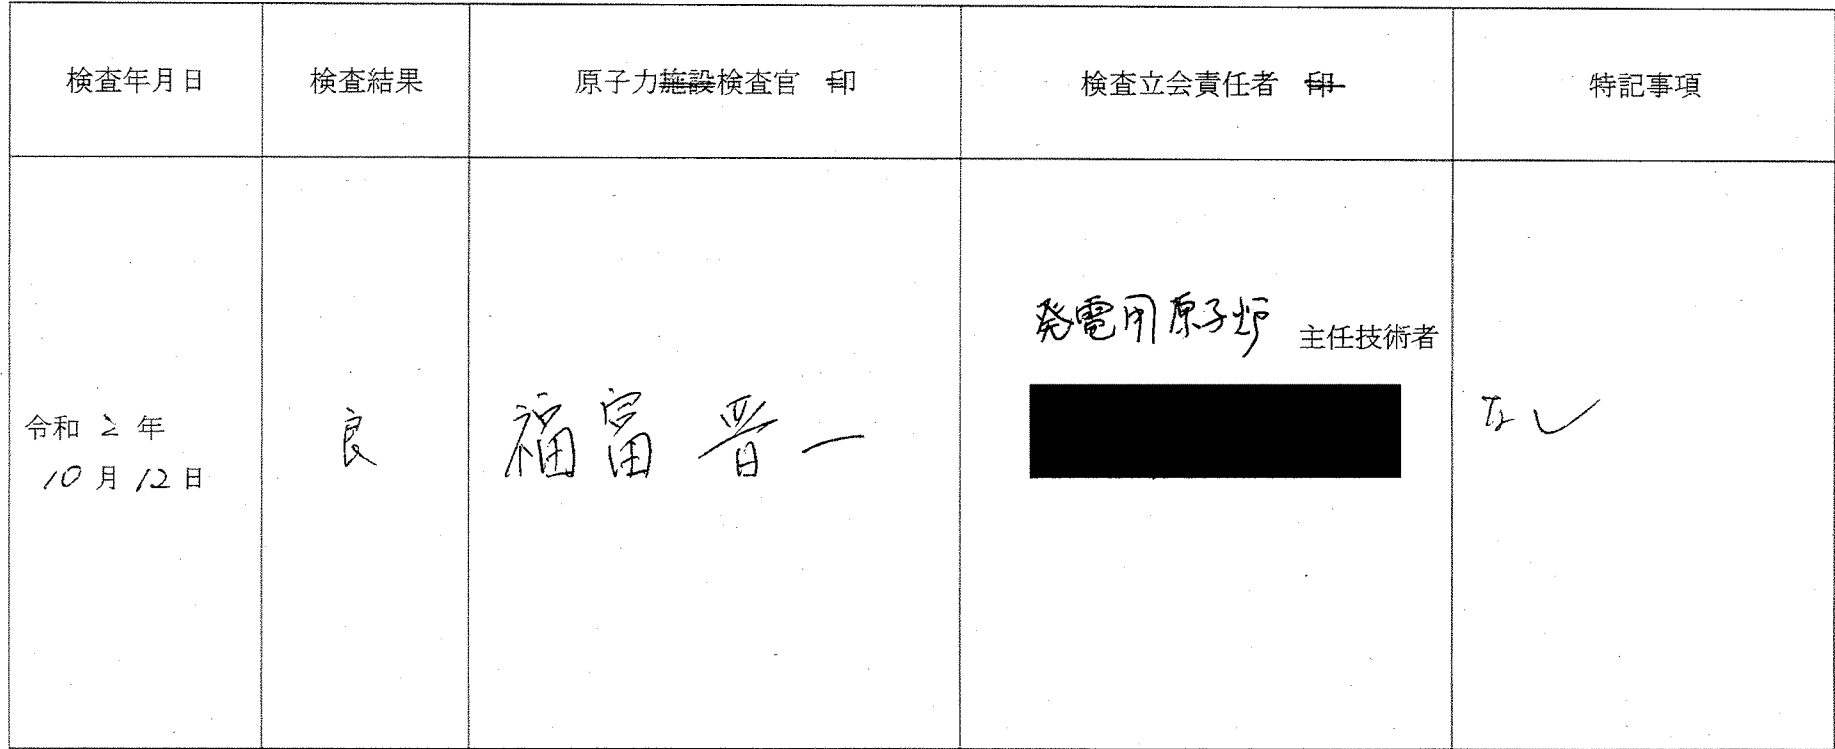 検査年月日
検査結果
原子力施設検査官 印
検査立会責任者 印
特記事項
令和 2 年
10 月 12 日
良
福富 晋一
発電用原子炉 主任技術者
なし